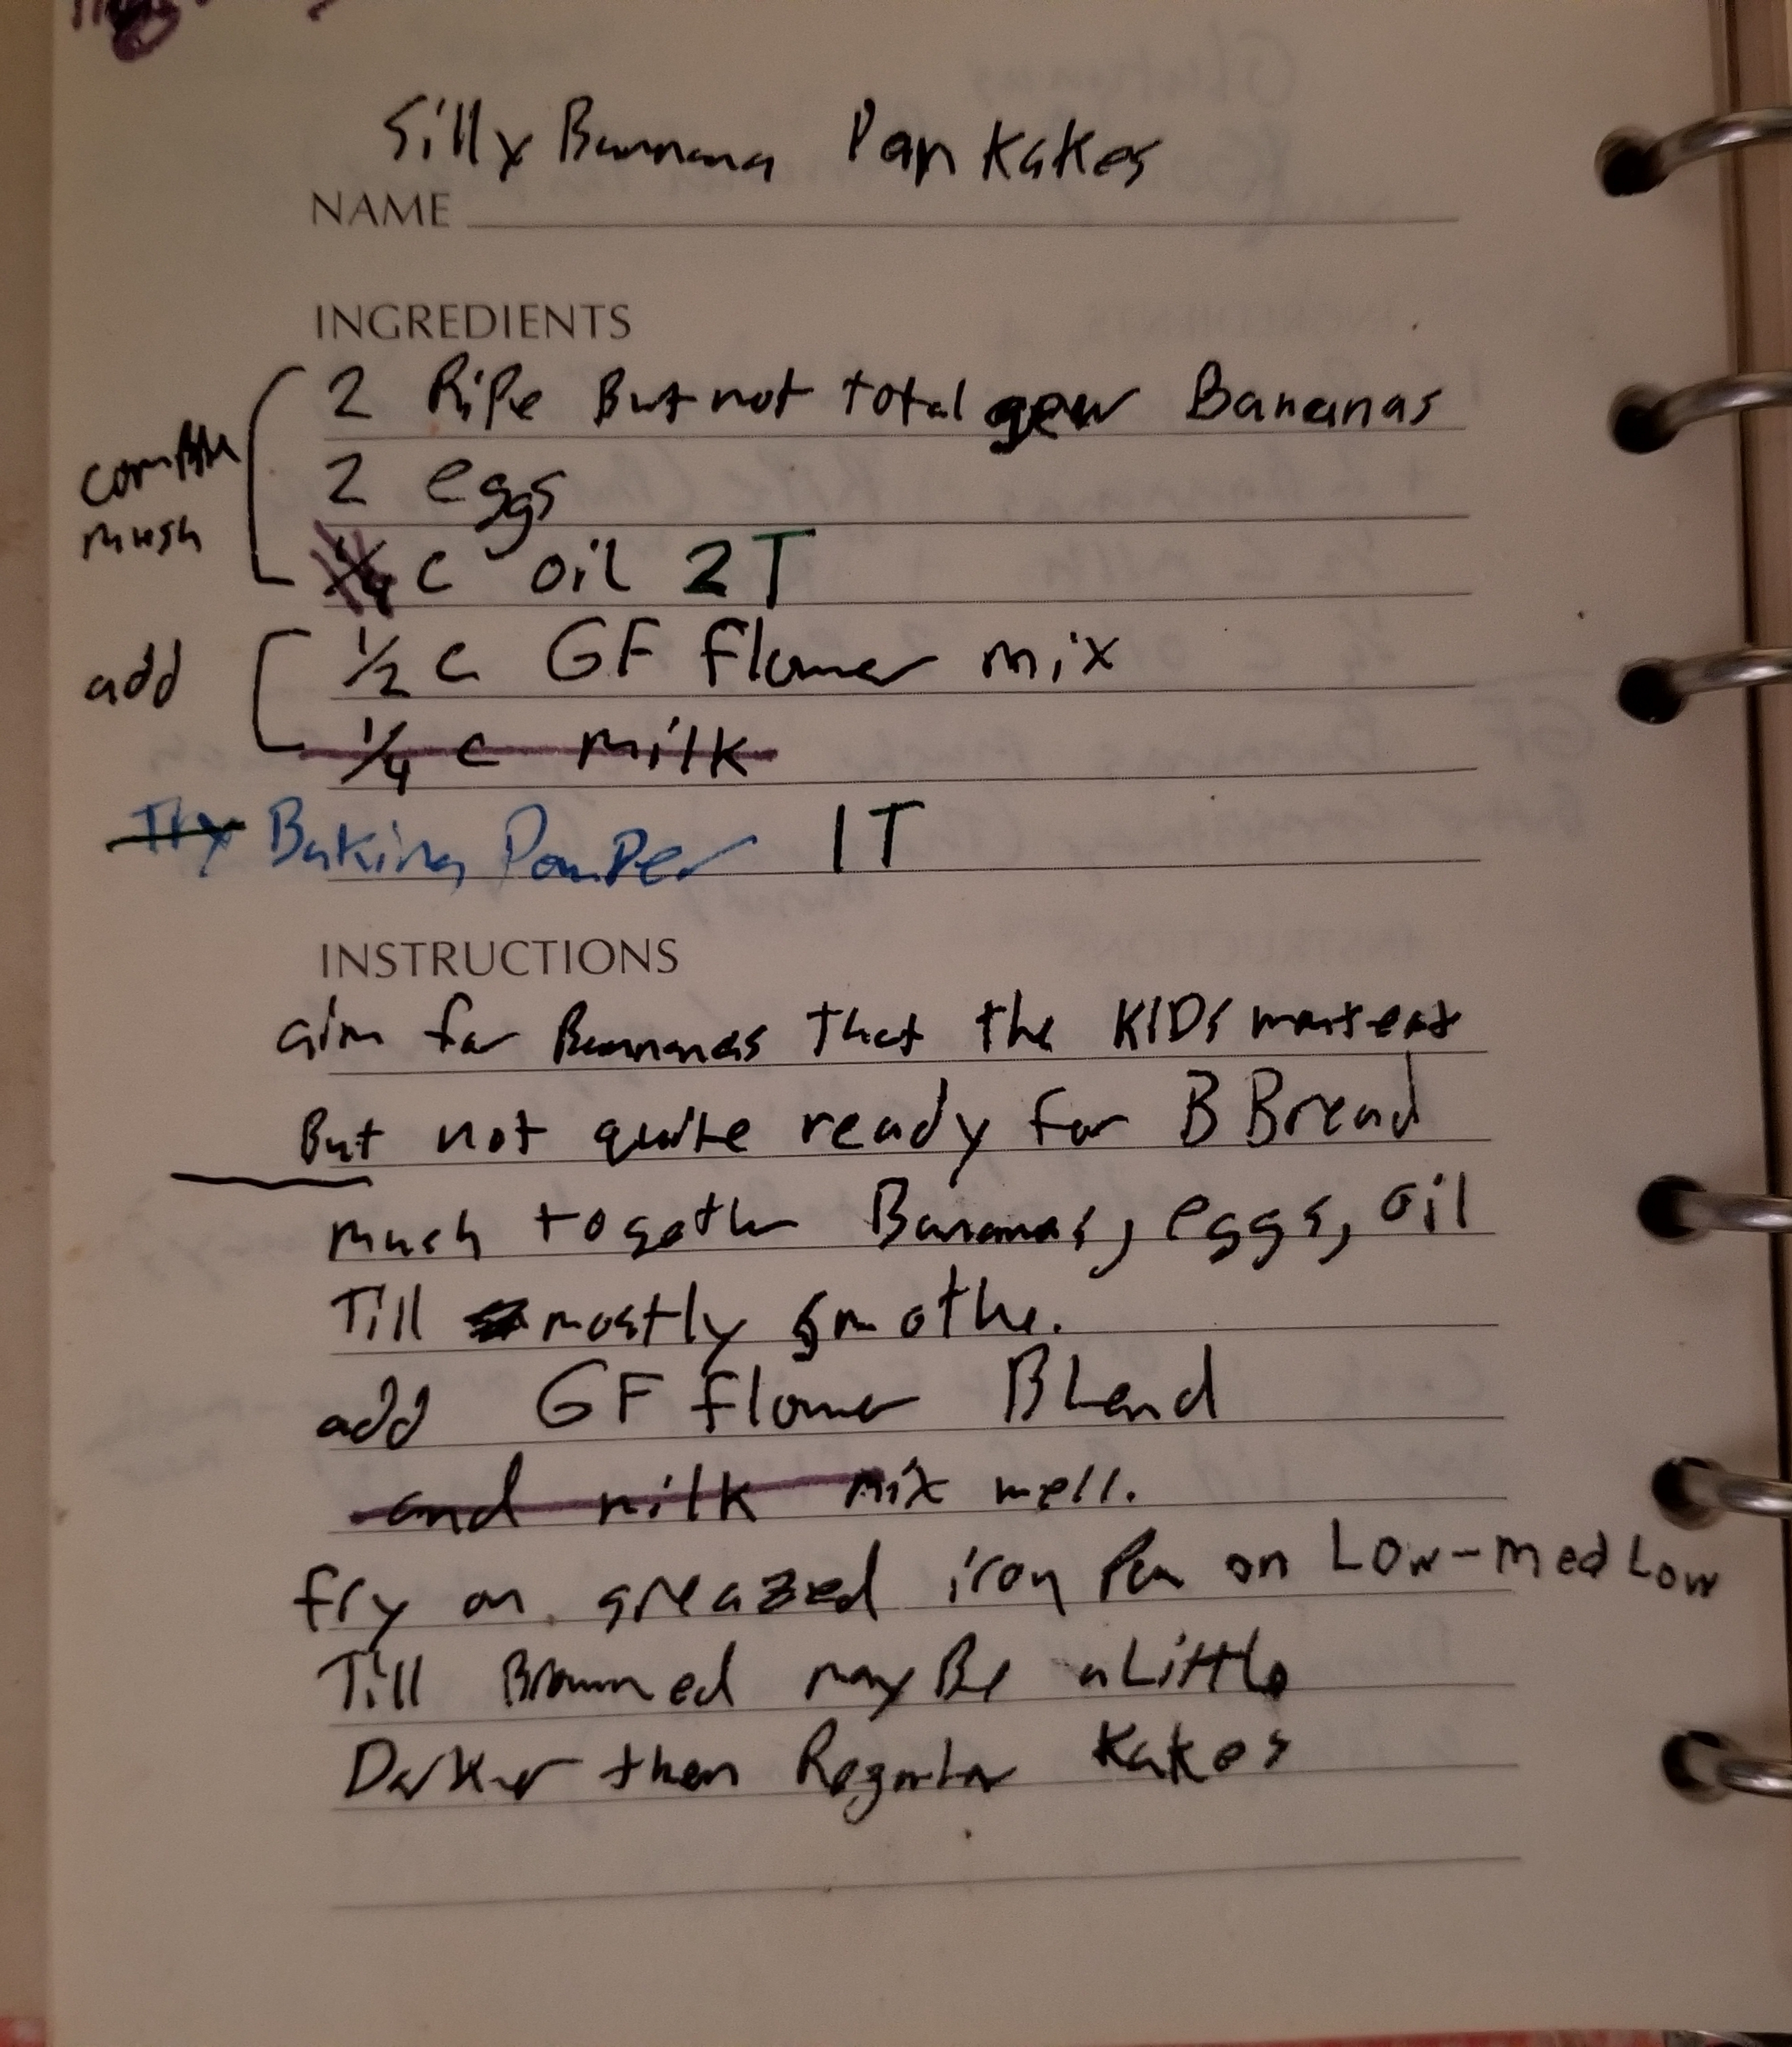 Silly Bannana Pan Kakes
NAME
INGREDIENTS
2 Ripe But not total Bananas
2 eggs
1/4 c oil 2T
combine
mush
1/2 c GF flower mix
1/4 c milk
add
Try Baking Powder 1T
INSTRUCTIONS
aim for Bannanas That the KIDS eat
But not quite ready for B Bread
mush together Bananas, eggs, oil
Till mostly smothe.
add GF flower BLend
and milk mix well.
fry on greazed iron Pan on Low-med Low
Till Browned mayBe a Little
Darker then Regular Kakes